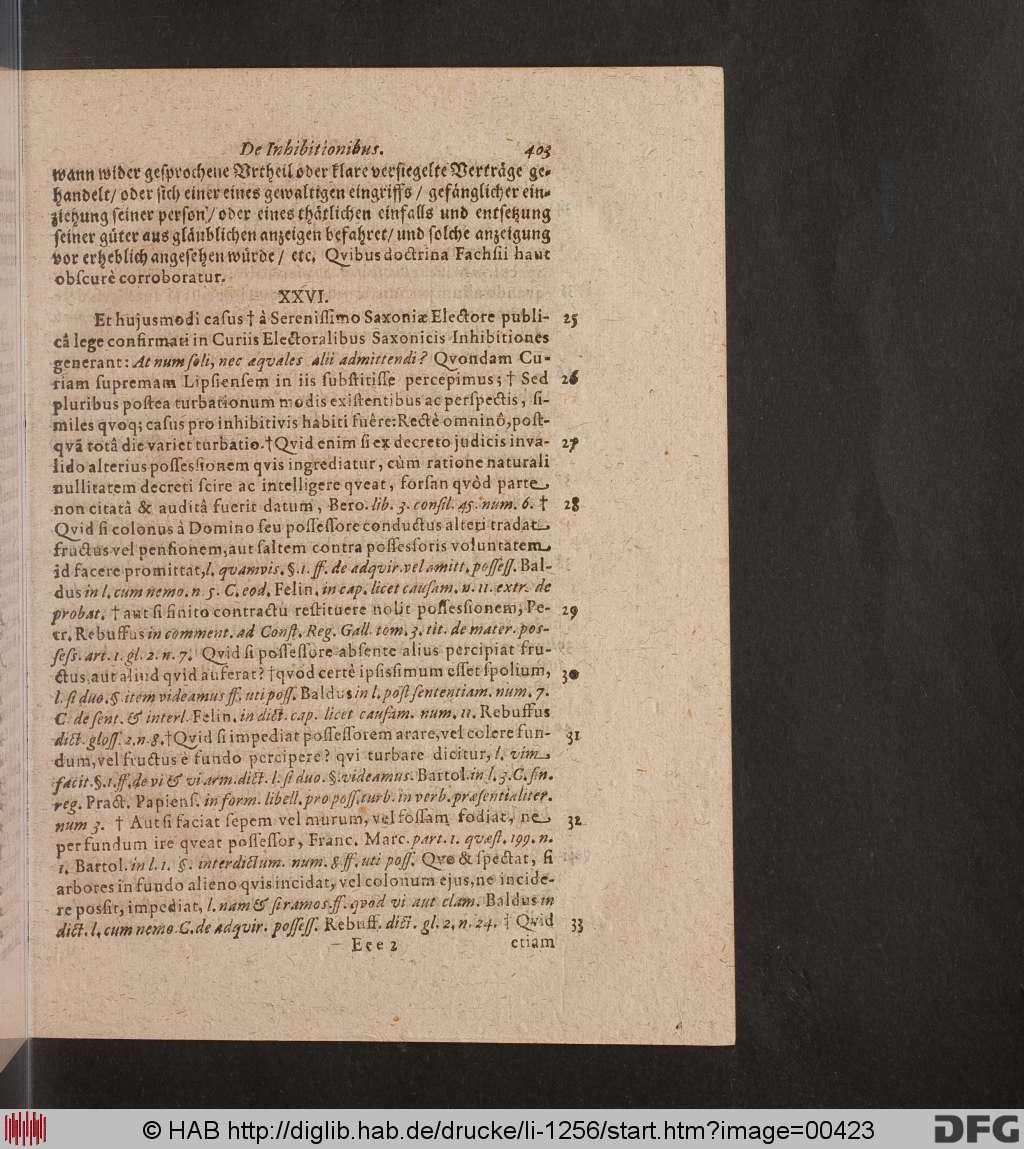 De Inhibitionibus. 403
wann wider gesprochene Vrtheil oder klare versiegelte Verträge ge-
handelt/ oder sich einer eines gewaltigen eingriffs / gefänglicher ein-
ziehung seiner person/ oder eines thätlichen einfalls und entsetzung
seiner güter aus gläublichen anzeigen befahret/ und solche anzeigung
vor erheblich angesehen würde/ etc. Qvibus doctrina Fachsii haut
obscurè corroboratur.
XXVI.
Et hujusmodi casus † à Serenissimo Saxoniæ Electore publi- 25
câ lege confirmati in Curiis Electoralibus Saxonicis Inhibitiones
generant: At num soli, nec æquales alii admittendi? Qvondam Cu-
riam supremam Lipsiensem in iis substitisse percepimus; † Sed 26
pluribus postea turbationum modis existentibus ac perspectis, si-
miles qvoq; casus pro inhibitivis habiti fuêre: Rectè omninô, post-
qvã totâ die variet turbatio. † Qvid enim si ex decreto judicis inva- 27
lido alterius possessionem qvis ingrediatur, cùm ratione naturali
nullitatem decreti scire ac intelligere qveat, forsan qvòd parte
non citatâ & auditâ fuerit datum, Bero. lib. 3. consil. 45. num. 6. † 28
Qvid si colonus à Domino seu possessore conductus alteri tradat
fructus vel pensionem, aut saltem contra possessoris voluntatem
id facere promittat, l. quamvis. §. 1. ff. de adqvir. vel amitt. possess. Bal-
dus in l. cum nemo. n. 5. C. eod. Felin. in cap. licet causam. n. 11. extr. de
probat. † aut si finito contractu restituere nolit possessionem, Pe- 29
tr. Rebuffus in comment. ad Const. Reg. Gall. tom. 3. tit. de mater. pos-
sess. art. 1. gl. 2. n. 7. Qvid si possessore absente alius percipiat fru-
ctus, aut aliud qvid auferat? † qvod certè ipsissimum esset spolium, 30
l. si duo. §. item videamus ff. uti poss. Baldus in l. post sententiam. num. 7.
C. de sent. & interl. Felin. in dict. cap. licet causam. num. 11. Rebuffus
dict. gloss. 2. n. 8. † Qvid si impediat possessorem arare, vel colere fun- 31
dum, vel fructus è fundo percipere? qvi turbare dicitur, l. vim
facit. §. 1. ff. de vi & vi arm. dict. l. si duo. §. videamus. Bartol. in l. 3. C. fin.
reg. Pract. Papiens. in form. libell. pro poss. turb. in verb. præsentialiter.
num 3. † Aut si faciat sepem vel murum, vel fossam fodiat, ne 32
per fundum ire qveat possessor, Franc. Marc. part. 1. quæst. 199. n.
1. Bartol. in l. 1. §. interdictum. num. 8. ff. uti poss. Qvo & spectat, si
arbores in fundo alieno qvis incidat, vel colonum ejus, ne incide-
re possit, impediat, l. nam & si ramos. ff. quod vi aut clam. Baldus in
dict. l. cum nemo. C. de adqvir. possess. Rebuff. dict. gl. 2. n. 24. † Qvid 33
Eee 2 etiam
© HAB http://diglib.hab.de/drucke/li-1256/start.htm?image=00423
DFG